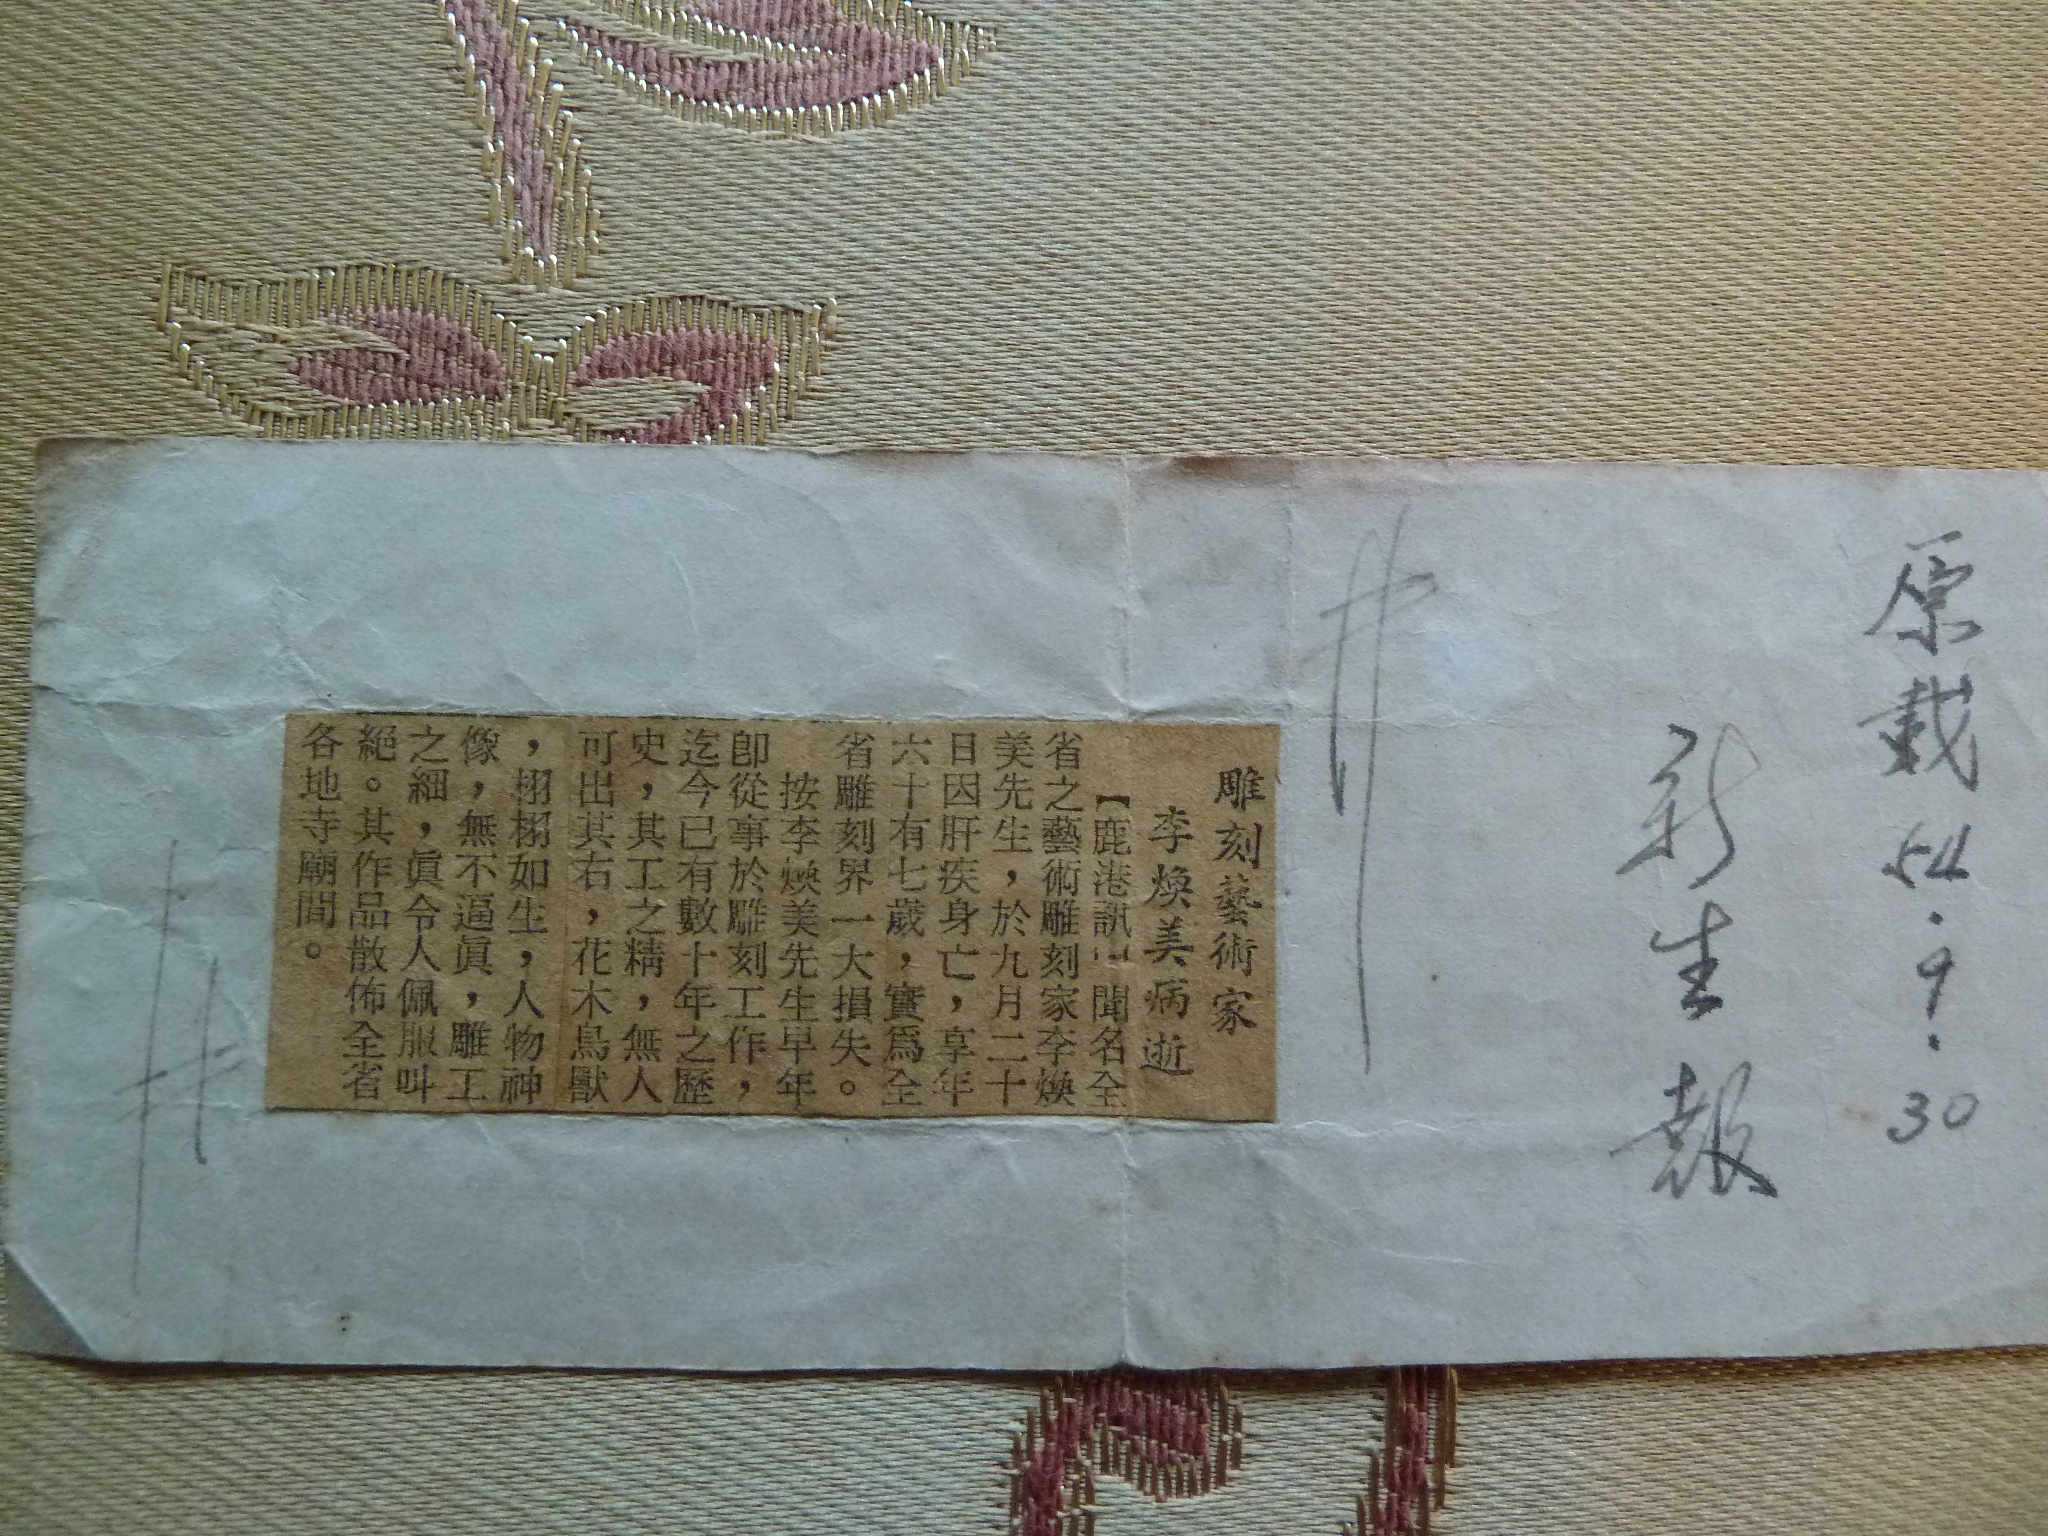 原載54.9.30
新生報
雕刻藝術家
李煥美病逝
【鹿港訊】聞名全
省之藝術雕刻家李煥
美先生，於九月二十
日因肝疾身亡，享年
六十有七歲，實爲全
省雕刻界一大損失。
按李煥美先生早年
卽從事於雕刻工作，
迄今已有數十年之歷
史，其工之精，無人
可出其右，花木鳥獸
，栩栩如生，人物神
像，無不逼眞，雕工
之細，眞令人佩服叫
絕。其作品散佈全省
各地寺廟間。